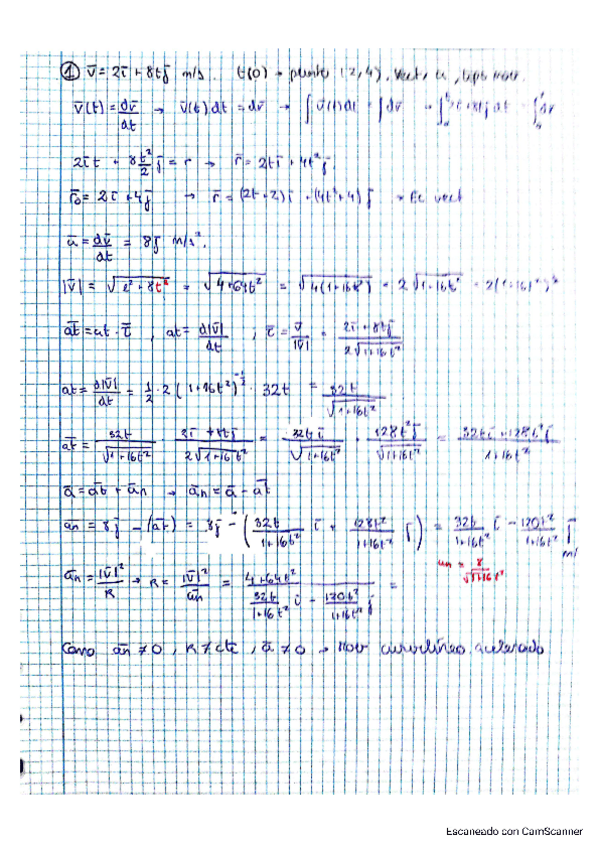 ① v̄ = 2ī + 8tj̄ m/s. t(0) → punto (2,4). Vect
v̄(t) = dv̄/dt → v̄(t) dt = dv̄ → ∫ v̄(t) dt = ∫ dv̄
2īt + 8 t²/2 j̄ = r → r̄ = 2tī + 4t² j̄
r̄₀ = 2ī + 4j̄ → r̄ = (2t+2)ī + (4t²+4) j̄ → Ec vect
ā = dv̄/dt = 8j̄ m/s².
|v̄| = √(2² + 8t²) = √(4+64t²) = √(4(1+16t²)) = 2√(1+16t²) = 2(1+16t²)
āt = at · τ̄ , at = d|v̄|/dt ; τ̄ = v̄/|v̄| = (2ī + 8tj̄)/(2√(1+16t²))
at = d|v̄|/dt = 1/2 · 2 (1+16t²)^(-1/2) · 32t = 32t/√(1+16t²)
āt = 32t/√(1+16t²) · (2ī + 8tj̄)/(2√(1+16t²)) = 32tī/√(1+16t²) + 128t²j̄/√(1+16t²) = (32tī + 128t²j̄)/(1+16t²)
ā = āt + ān → ān = ā - āt
ān = 8j̄ - (āt) = 8j̄ - (32t/(1+16t²) ī + 128t²/(1+16t²) j̄) = 32t/(1+16t²) ī - 120t²/(1+16t²) j̄ m/
an = 8/√(1+16t²)
ān = |v̄|²/R → R = |v̄|²/ān = (4+64t²)/(32t/(1+16t²) ī - 120t²/(1+16t²) j̄) =
Como ān ≠ 0, R ≠ cte, ā ≠ 0 → mov curvilíneo acelerado
Escaneado con CamScanner